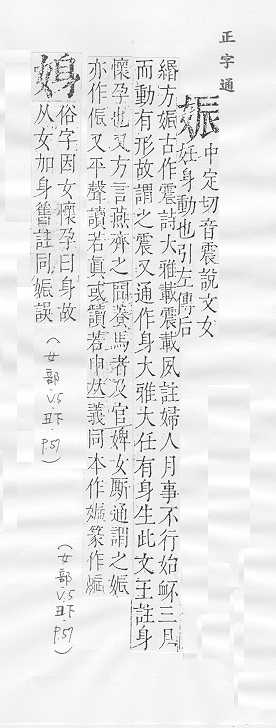 正字通
娠
中定切音震說文女
妊身動也引左傳后
緡方娠古作震詩大雅載震載夙註婦人月事不行始䱐三月
而動有形故謂之震又通作身大雅大任有身生此文王註身
懷孕也又方言燕齊之間養馬者及官婢女廝通謂之娠
亦作侲又平聲讀若眞或讀若申𠀤義同本作娠篆作
(女部.V.5丑下.P.57)
㛛
俗字因女懷孕曰身故
从女加身舊註同娠誤
(女部.V.5.丑下.P.57)